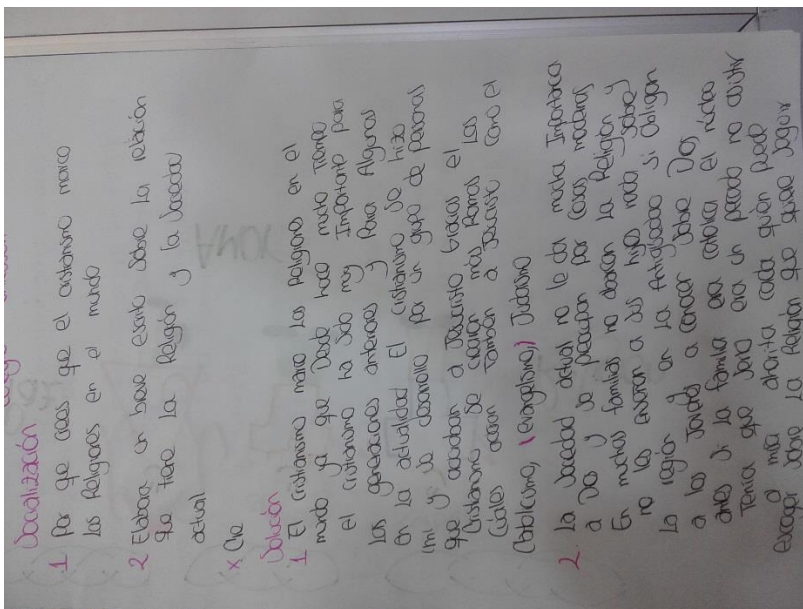 Socialización
1 Por que crees que el cristianismo marco
las Religiones en el mundo
2 Elabora un breve escrito sobre la relación
que tiene la Religión y la Sociedad
actual
x Cre
Solución
1 El cristianismo marco las Religiones en el
mundo ya que desde hace mucho Tiempo
el cristianismo ha sido muy Importante para
las generaciones anteriores y Para Algunas
en la actualidad El cristianismo se hizo
y se desarrollo por un grupo de personas
que a Jesucristo Gracias el
Cristianismo se crearon mas Ramas Las
Cuales creen También a Jesucristo como el
Catolicismo, (evangelismo,) Judaismo
2. La Sociedad actual no le da mucha Importancia
a Dios y se por cosas
En muchas familias no la Religion y
no les enseñan a sus hijos nada sobre
La región y en la Antigüedad si Obligan
a los Jovenes a conocer sobre Dios
antes si la familia era catolica el nucleo
Tenia que serlo era un pecado no asistir
a misa ahorita cada quien puede
escoger sobre la Religion que quiere seguir